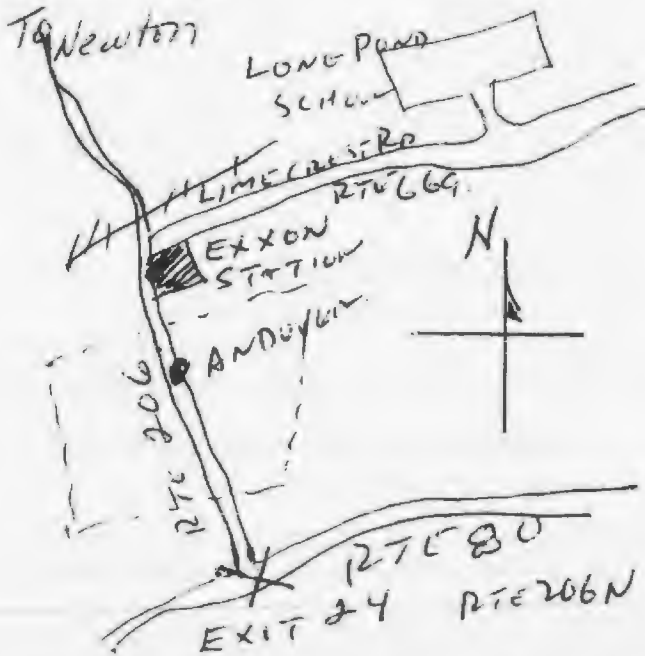 To Newton
LONG POND
SCHOOL
LIMECREST RD
RTE 669.
EXXON
STATION
N
ANDOVER
RTE 206
RTE 80
EXIT 24 RTE 206N